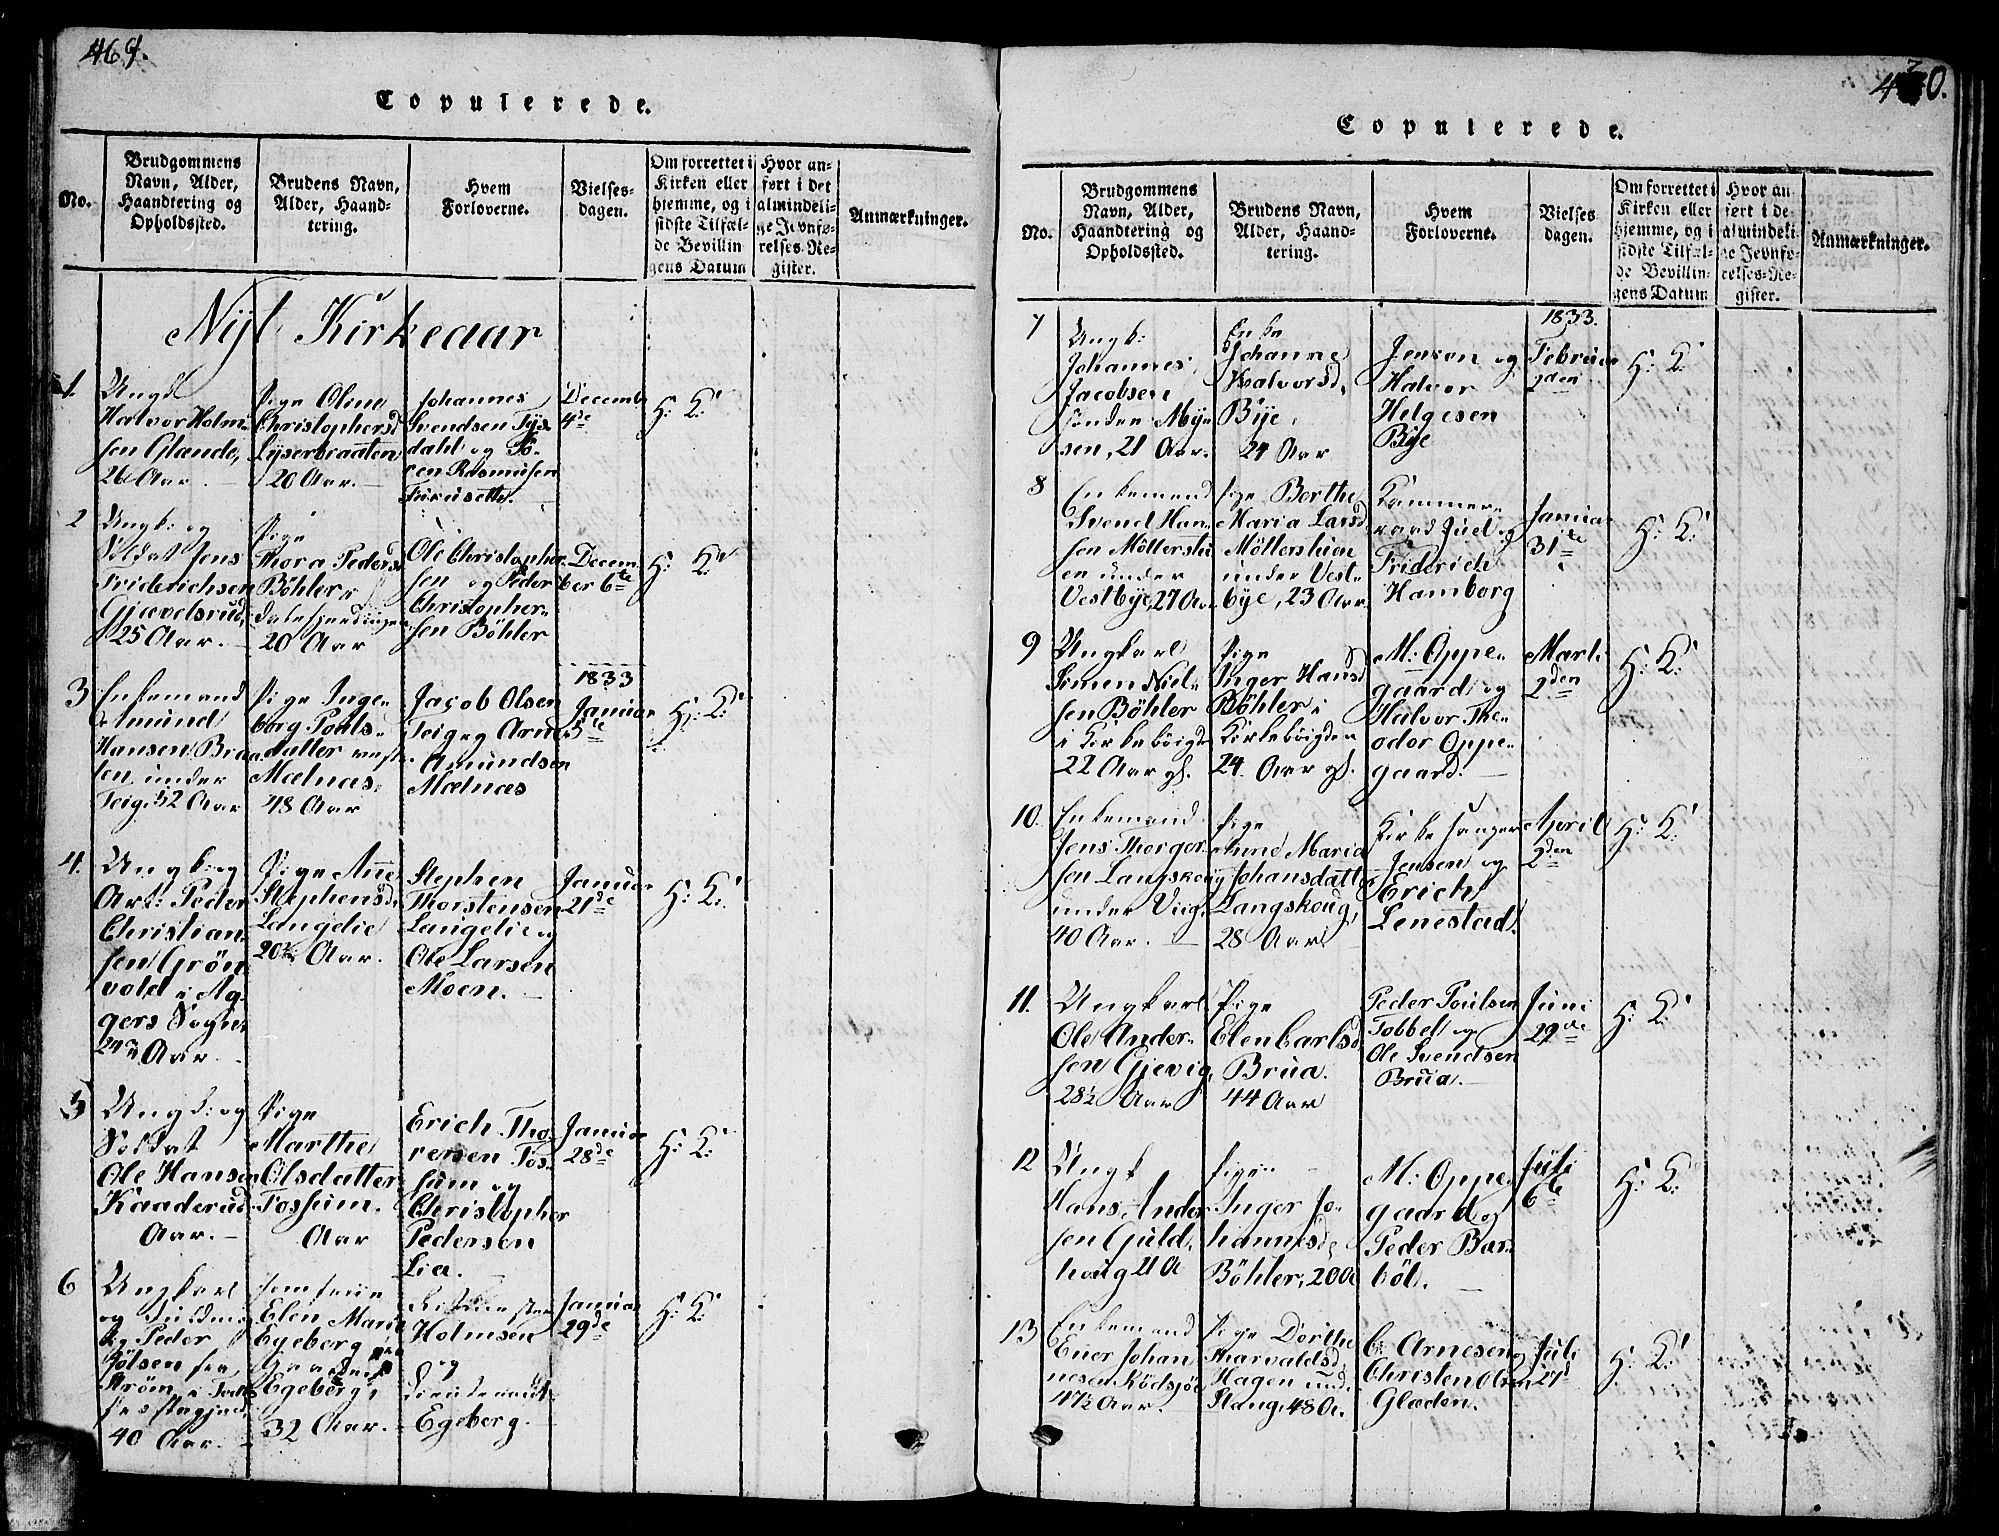 469.
Copulerede.
No.
Brudgommens
Navn, Alder,
Haandtering og
Opholdssted.
Brudens Navn,
Alder, Haand-
tering.
Hvem
Forloverne.
Vielses-
dagen.
Om forrettet i
Kirken eller
hjemme, og i
sidste Tilfæl-
de Bevillin-
gens Datum
Hvor an-
ført i det
almindeli-
ge Jevnfø-
relses-Re-
gister.
Anmærkninger.
Nyt Kirkeaar
1.
Ungk
Halvor Holm-
sen Glænde,
26 Aar.
Pige Oline
Christophersd
Lyserbraaten
20 Aar.
Johannes
Svendsen Tys-
dahl og
Rasmusen
Decemb
4de
H: K:
2
Ungk: og
Soldat Jens
Friderichsen
Gjævelsrud,
25 Aar.
Pige
Thora Peders
Böhler,
20 Aar
Ole Christopher-
sen og Peder
Christopher-
sen Böhler
Decem-
ber 6te
H: K:
3
Enkemand
Amund
Hansen Braa-
ten under
Teig, 52 Aar
Pige Inge-
borg Pouls-
datter
Mælnas,
48 Aar
Jacob Olsen
Teig og Arne
Amundsen
Mælnæs
1833
Januar
5te
H: K:
4.
Ungk: og
Art: Peder
Christian-
sen Grön-
vold i Ag-
gers Sogn,
Aar.
Pige Ane
Stephensd
Langelie
20½ Aar.
Stephen
Thorstensen
Langelie og
Ole Larsen
Moen.
Januar
21de
H: K:
5
Ungk: og
Soldat
Ole Hansen
Kaaderud
Aar.
Pige
Marthe
Olsdatter
Fossum.
Aar
Erich Tho-
resen Fos-
sum og
Christopher
Pedersen
Lia.
Januar
28de
H: K:
6
Ungkarl
og
Peder
Jölsen fra
Ström i
40 Aar.
Jomfrue
Elen Marie
Egeberg
Egeberg,
32 Aar.
Holmsen
og
Egeberg.
Januar
29de
H: K:
470.
Copulerede.
No.
Brudgommens
Navn, Alder,
Haandtering og
Opholdssted.
Brudens Navn,
Alder, Haand-
tering.
Hvem
Forloverne.
Vielses
dagen.
Om forrettet i
Kirken eller
hjemme, og i
sidste Tilfæl-
de Bevillin-
gens Datum
Hvor an-
ført i de
almindeli-
ge Jevnfø-
relses-Re-
gister.
Anmærkninger.
7
Ungk:
Johannes
Jacobsen
Söndre Myr-
sen, 21 Aar.
Enke
Johanne
Halvorsd,
Bye,
24 Aar
Jensen og
Halvor
Helgesen
Bye
1833.
Februar
2den
H: K:
8
Enkemand
Svend Han-
sen Möllerstu-
en under
Vestbye, 27 Aar
Pige Berthe
Maria Larsd
Möllerstuen
under Vest-
bye, 23 Aar
Kammer-
raad Juel og
Friderich
Hamborg
Januar
31te
H: K:
9
Ungkarl
Simen Niel-
sen Böhler
i Kirkeböigden
22 Aar gl.
Pige
Inger Hansd
Böhler i
Kirkeböigden
24 Aar gl.
M: Oppe-
gaard og
Halvor The-
odor Oppe-
gaard.
Marti
2den
H: K:
10.
Enkemand
Jens Thorger-
sen Langskoug
under
40 Aar.
Pige
Anne Maria
Johansdatter
Langskoug,
28 Aar
Kirkesanger
Jensen og
Erich
Lenestad.
April
2den
H: K:
11.
Ungkarl
Ole Ander-
sen Gjevig,
28½ Aar
Pige
Elen Carlsd
Brua.
44 Aar
Peder Poulsen
Tobbel og
Ole Svendsen
Brua.
Juni
29de
H: K:
12
Ungk
Hans Ander
sen Guld-
houg 21 A
Pige
Inger Jo-
hannesd,
Böhler, 20 A
M: Oppe-
gaard og
Peder Bær-
höl.
Juli
6te
H: K:
13
Enkemand
Ener Johan
nesen Ködsjöe
47½ Aar.
Pige Dorthe
Harvaldsd,
Hagen und:
Haug, 48 A.
C: Arnesen og
Christen Olsen
Glæden.
Juli
27d
H: K: